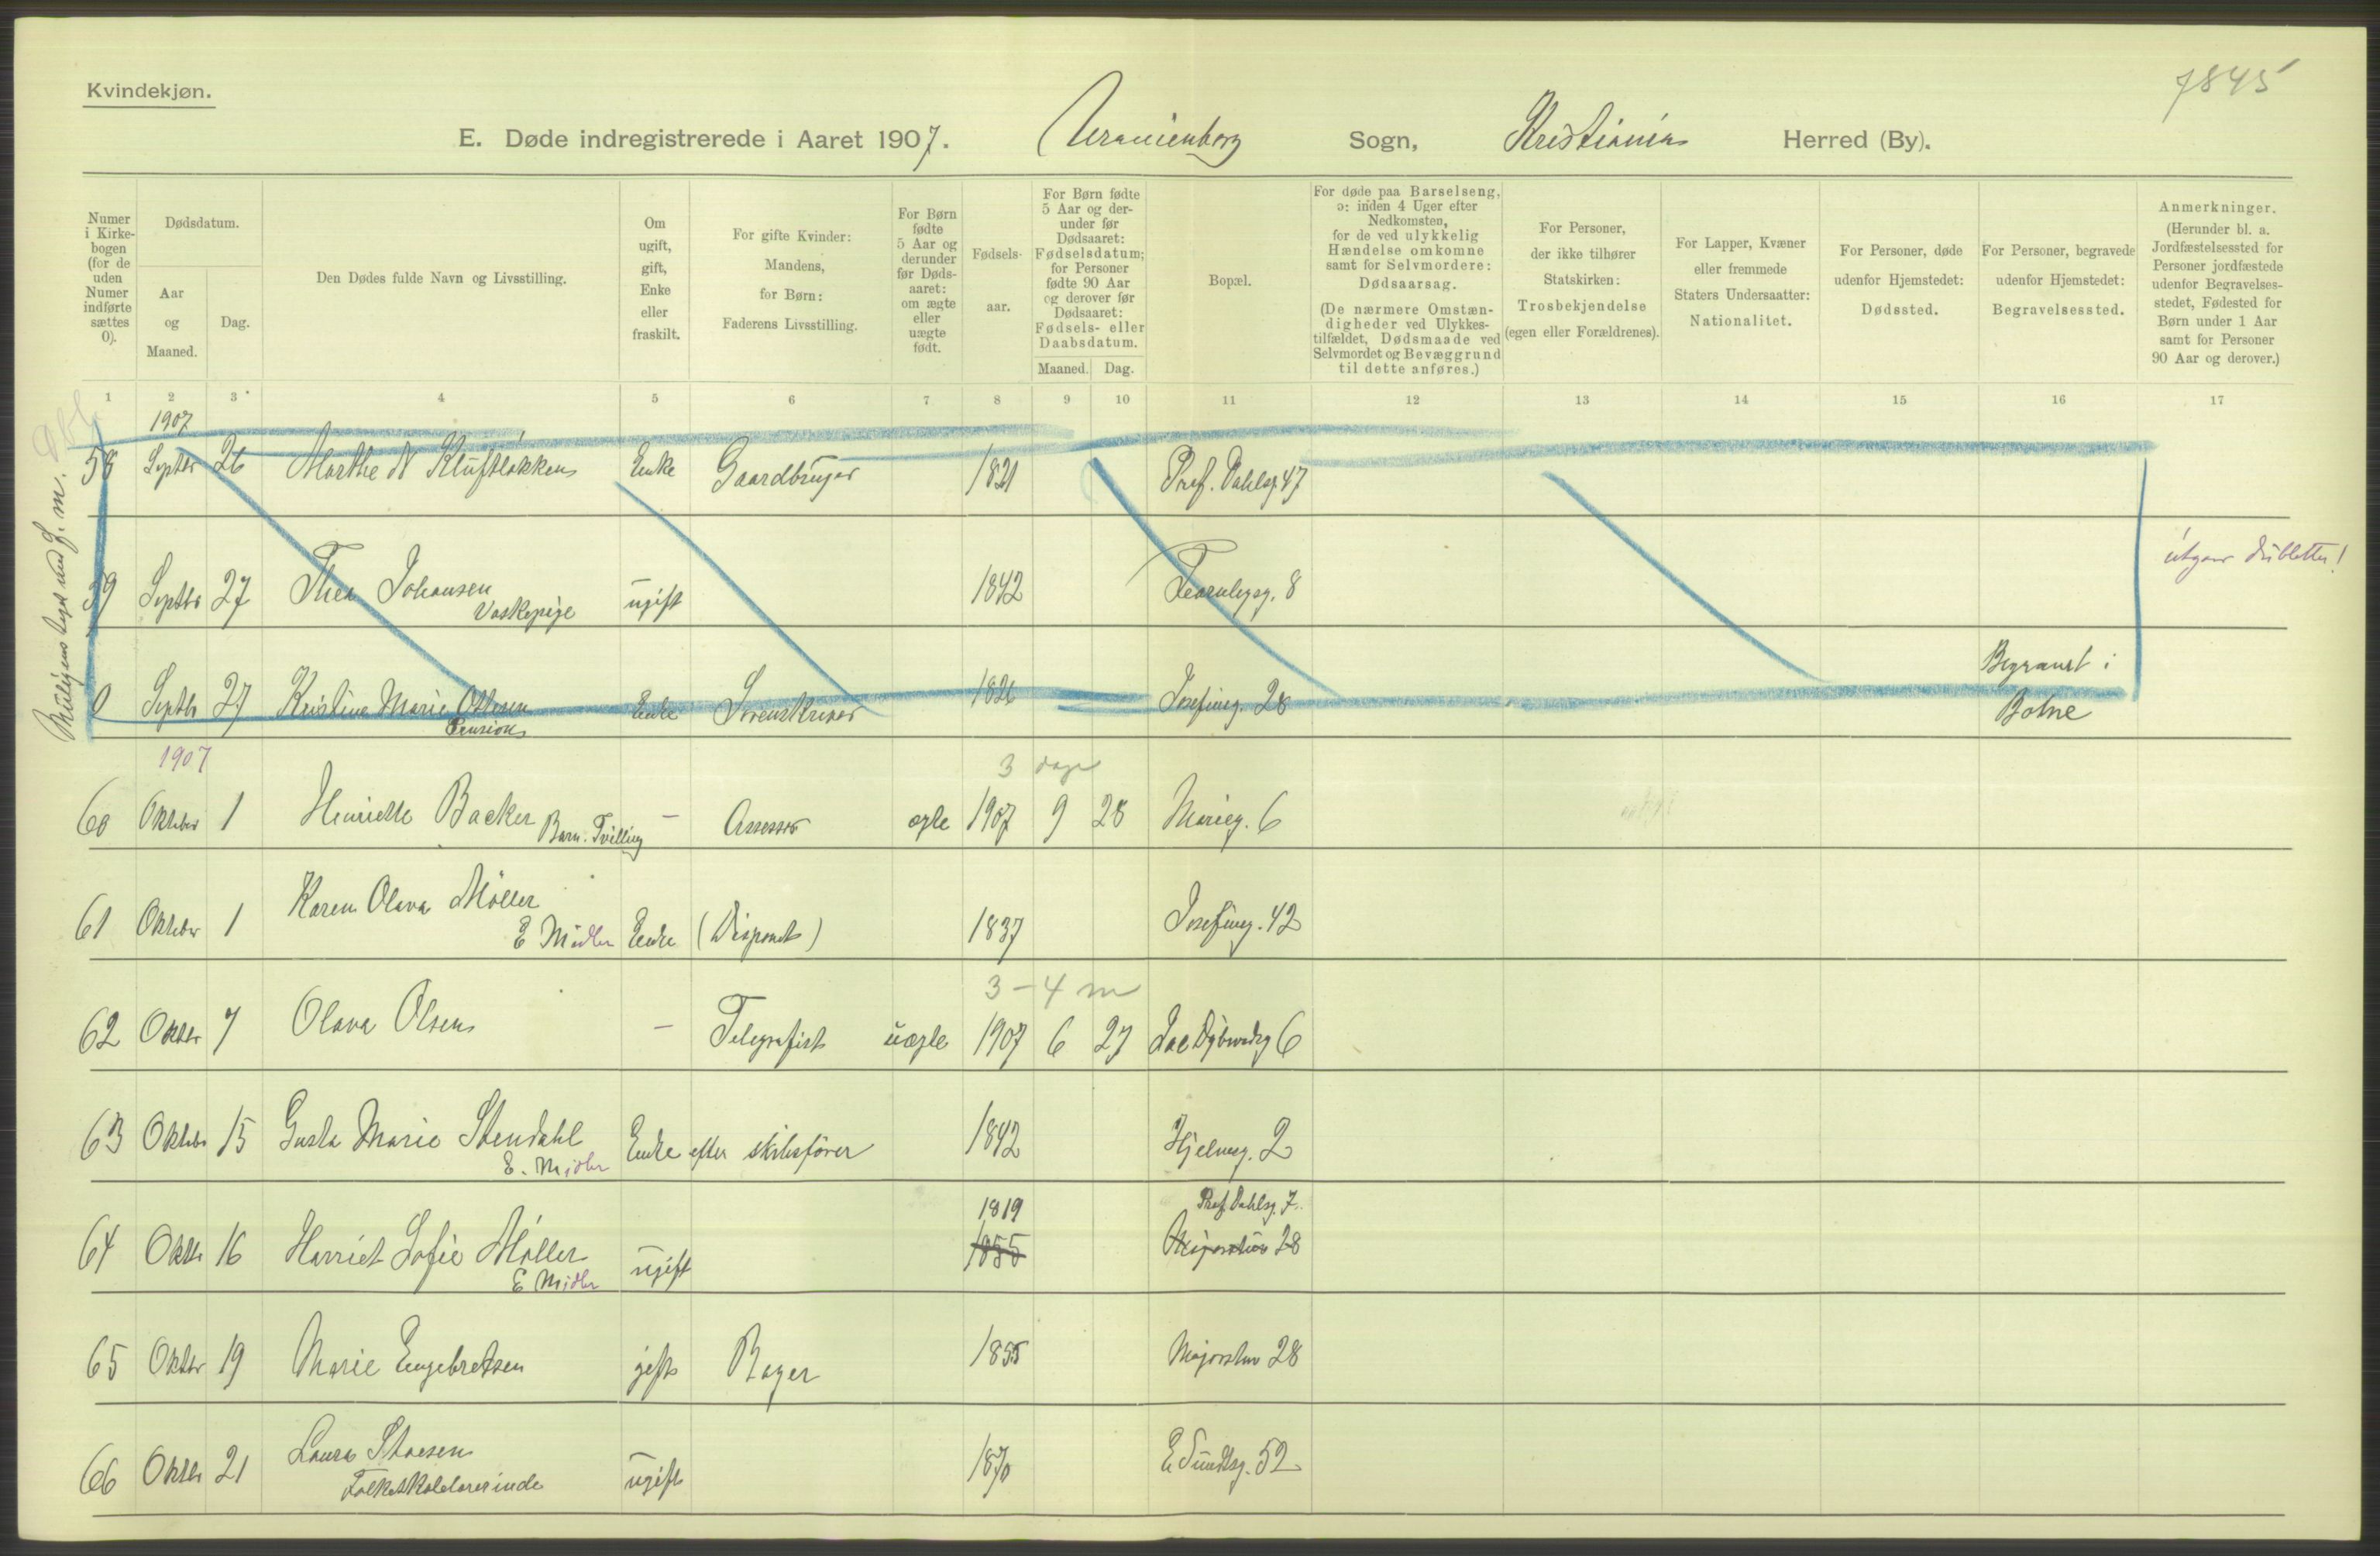 Kvindekjøn.
7845
E. Døde indregistrerede i Aaret 1907. Uranienborg Sogn, Kristiania Herred (By).
Numer i Kirkebogen (for de uden Numer indførte sættes 0).
Dødsdatum.
Aar og Maaned.
Dag.
Den Dødes fulde Navn og Livsstilling.
Om ugift, gift, Enke eller fraskilt.
For gifte Kvinder: Mandens, for Børn: Faderens Livsstilling.
For Børn fødte 5 Aar og derunder før Dødsaaret: om ægte eller uægte født.
Fødselsaar.
For Børn fødte 5 Aar og derunder før Dødsaaret: Fødselsdatum; for Personer fødte 90 Aar og derover før Dødsaaret: Fødsels- eller Daabsdatum.
Maaned. Dag.
Bopæl.
For døde paa Barselseng, ɔ: inden 4 Uger efter Nedkomsten, for de ved ulykkelig Hændelse omkomne samt for Selvmordere: Dødsaarsag.
(De nærmere Omstændigheder ved Ulykkestilfældet, Dødsmaade ved Selvmordet og Bevæggrund til dette anføres.)
For Personer, der ikke tilhører Statskirken: Trosbekjendelse (egen eller Forældrenes).
For Lapper, Kvæner eller fremmede Staters Undersaatter: Nationalitet.
For Personer, døde udenfor Hjemstedet: Dødssted.
For Personer, begravede udenfor Hjemstedet: Begravelsessted.
Anmerkninger. (Herunder bl. a. Jordfæstelsessted for Personer jordfæstede udenfor Begravelsesstedet, Fødested for Børn under 1 Aar samt for Personer 90 Aar og derover.)
1 2 3 4 5 6 7 8 9 10 11 12 13 14 15 16 17
1907
58 Septbr 26 Marthe N Kluftløkken Enke Gaardbruger 1821 Prof. Dahlsg. 47
59 Septbr 27 Thea Johansen ugift 1842 Fearnleysg. 8
Vaskepige
utgaar dubletter!
0 Septbr 27 Kristine Marie Ottesen Enke Sorenskriver 1826 Josefineg. 28 Begravet i
Pension Botne
1907
3 dage
60 Oktober 1 Henriette Backer Barn. Tvilling — Assessor ægte 1907 9 28 Marieg. 6
61 Oktober 1 Karen Olava Møller
E Midler Enke (Disponent) 1837 Josefineg. 42
3–4 m
62 Oktbr 7 Olava Olsen — Telegrafist uægte 1907 6 27 Jac Dybwadsg 6
63 Oktober 15 Gusta Marie Stendahl Enke efter skibsfører 1842 Hjelmsg. 2
E. Midler
1819 Prof. Dahlsg. 7
64 Oktbr 16 Harriet Sofie Møller ugift 1855 Majorstuv 28
E Midler
65 Oktbr 19 Marie Engebretsen gift Bager 1855 Majorstuv 28
66 Oktbr 21 Laura Staesen ugift 1870 E Sundtsg. 52
Folkeskolelærerinde